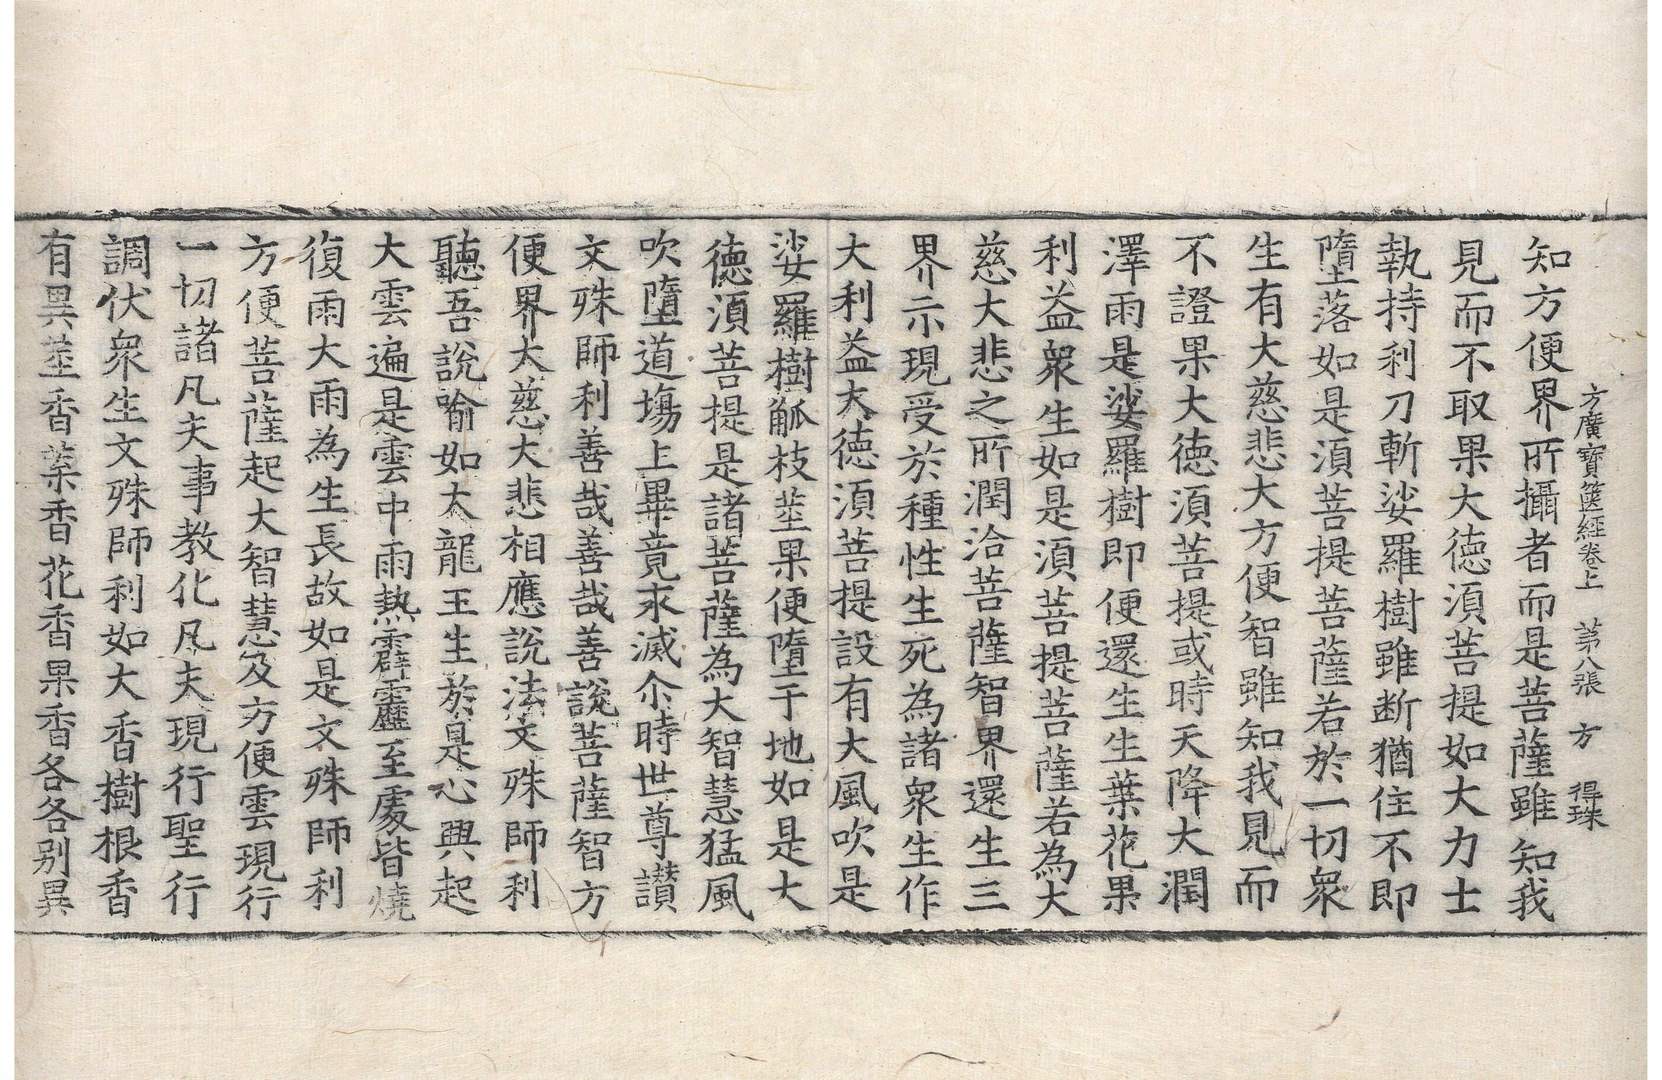 方廣寶篋經卷上　第八張　方　得珠
知方便界所攝者而是菩薩雖知我
見而不取果大德湏菩提如大力士
執持利刀斬娑羅樹雖断猶住不即
墮落如是湏菩提菩薩若於一切衆
生有大慈悲大方便智雖知我見而
不證果大德湏菩提或時天降大潤
澤雨是娑羅樹即便還生生葉花果
利益衆生如是湏菩提菩薩若為大
慈大悲之所潤洽菩薩智界還生三
界示現受於種性生死為諸衆生作
大利益大德湏菩提設有大風吹是
娑羅樹觚枝莖果便墮于地如是大
德湏菩提是諸菩薩為大智慧猛風
吹墮道塲上畢竟求滅尒時世尊讃
文殊師利善哉善哉善說菩薩智方
便界大慈大悲相應說法文殊師利
聽吾說喻如大龍王生於是心興起
大雲遍是雲中雨熱霹靂至處皆燒
復雨大雨為生長故如是文殊師利
方便菩薩起大智慧及方便雲現行
一切諸凡夫事教化凡夫現行聖行
調伏衆生文殊師利如大香樹根香
有異莖香葉香花香果香各各別異